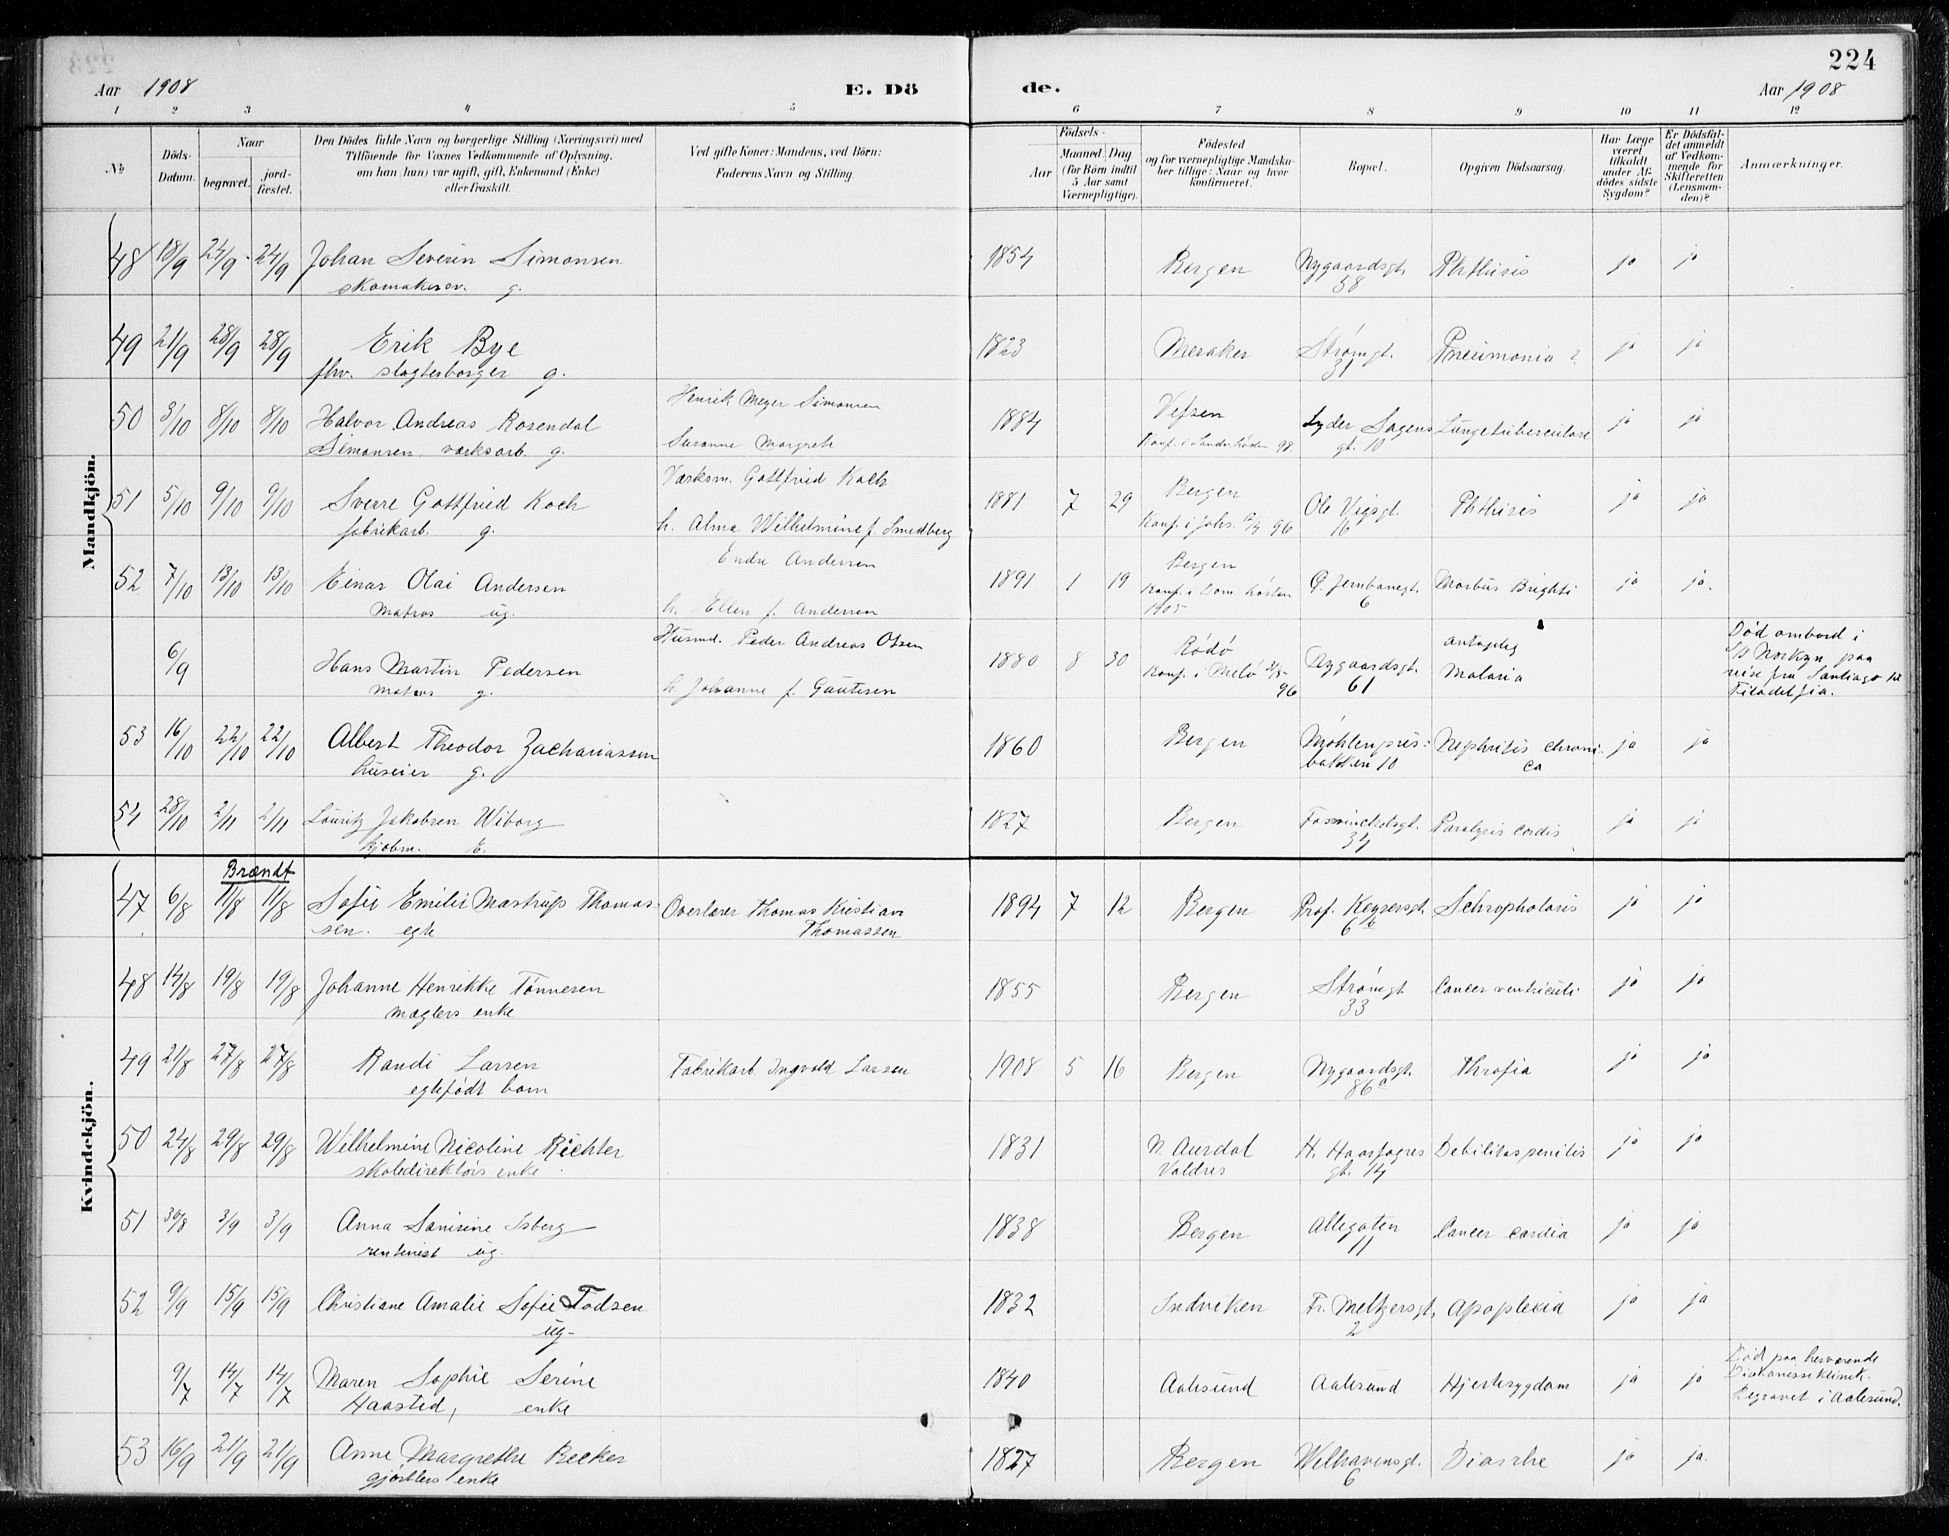 224
Aar 1908
E. Dö
de.
Aar 1908
1 2 3 4 5 6 7 8 9 10 11 12
No.
Döds-Datum.
Naar
begravet.
jord-fæstet.
Den Dödes fulde Navn og borgerlige Stilling (Næringsvei) med
Tilföiende for Voxnes Vedkommende af Oplysning,
om han (hun) var ugift, gift, Enkemand (Enke)
eller fraskilt.
Ved gifte Koner: Mandens, ved Börn:
Faderens Navn og Stilling
Födsels-
Aar
Maaned Dag
(for Börn indtil
5 Aar samt
Værnepligtige).
Födested
og for værnepligtige Mandska-
ber tillige: Naar og hvor
konfirmeret.
Bopæl.
Opgiven Dödsaarsag.
Har Læge
været
tilkaldt
under Af-
dödes sidste
Sygdom?
Er Dödsfal-
det anmeldt
af Vedkom-
mende for
Skifteretten
(Lensman-
den)?
Anmærkninger.
Mandkjön.
48 18/9 24/9 24/9 Johan Severin Simonsen 1854 Bergen Nygaardsgt. Phthisis ja ja
skomakersv. g. 58
49 21/9 28/9 28/9 Erik Bye 1823 Meraker Strømgt. Pneumonia ? ja ja
fhv. slagterborger g. 31
50 3/10 8/10 8/10 Halvor Andreas Rosendal Henrik Meyer Simonsen 1884 Vefsen Lyder Sagens Lungetuberculose ja ja
Simonsen verksarb. g. Susanne Margrete Konf. i 98. gt. 10
51 5/10 9/10 9/10 Sverre Gottfried Koch Værksm. Gottfried Koch 1881 7 29 Bergen Ole Vigsgt. Phthisis ja ja
fabrikarb. g. h. Alma Wilhelmine f. Smedberg Konf. i Johs. 96 16
52 7/10 13/10 13/10 Einar Olai Andersen Endre Andersen 1891 1 19 Bergen G. Jernbanegt. Morbus Brighti ja ja.
Matros ug. h. Ellen f. Andersen Konf. i Dom. høsten 1905 6
6/9 Hans Martin Pedersen Husmd. Peder Andreas Olsen 1880 8 30 Rødø Nygaardsgt. antagelig Død ombord i
matros g. h Johanne f. Gautesen Konf. i Melø 96 61 Malaria S/S Norkyn paa
reise fra Santiago til
Filadelfia.
53 16/10 22/10 22/10 Albert Theodor Zachariassen 1860 Bergen Møhlenpris- Nephritis chroni- ja ja
huseier g. bakken 10 ca
54 28/10 2/11 2/11 Lauritz Jakobsen Wiborg 1827 Bergen Fosswinckelsgt. Paralysis cordis ja ja
kjøbm. E. 34
Kvindekjön.
Brændt
47 6/8 11/8 11/8 Sofie Emilie Mastrup Thomas- Overlærer Thomas Kristian 1894 7 12 Bergen Prof. Keysersgt. Schropholosis ja ja
sen. egte Thomassen 6b
48 14/8 19/8 19/8 Johanne Henrikke Tønnesen 1855 Bergen Strømgt. Cancer ventriculi. ja ja
mæglers enke 33
49 21/8 27/8 27/8 Randi Larsen Fabrikarb. Ingvald Larsen 1908 5 16 Bergen Nygaardsgt. Athrofia ja ja
egtefødt barn 86c
50 24/8 29/8 29/8 Wilhelmine Nicoline Richter 1831 N. Aurdal H. Haarfagres Debilitas senilis ja ja
skoledirektørs enke. Valdres gt. 14
51 30/8 3/9 3/9 Anna Severine Isberg 1838 Bergen Allegaten Cancer cardia ja ja
rentenist ug. 11
52 9/9 15/9 15/9 Christiane Amalie Sofie Todsen 1832 Indviken Fr. Meltzersgt. Apoplexia ja ja
ug. 2
9/7 14/7 14/7 Maren Sophie Serine 1840 Aalesund Aalesund Hjertesygdom ja ja Død paa herværende
Haasted, enke Diakonisseklinik.
Begravet i Aalesund.
53 16/9 21/9 21/9 Anne Margrethe Becker 1827 Bergen Welhavensgt. Diarrhe ja ja.
gjørtlers enke 6